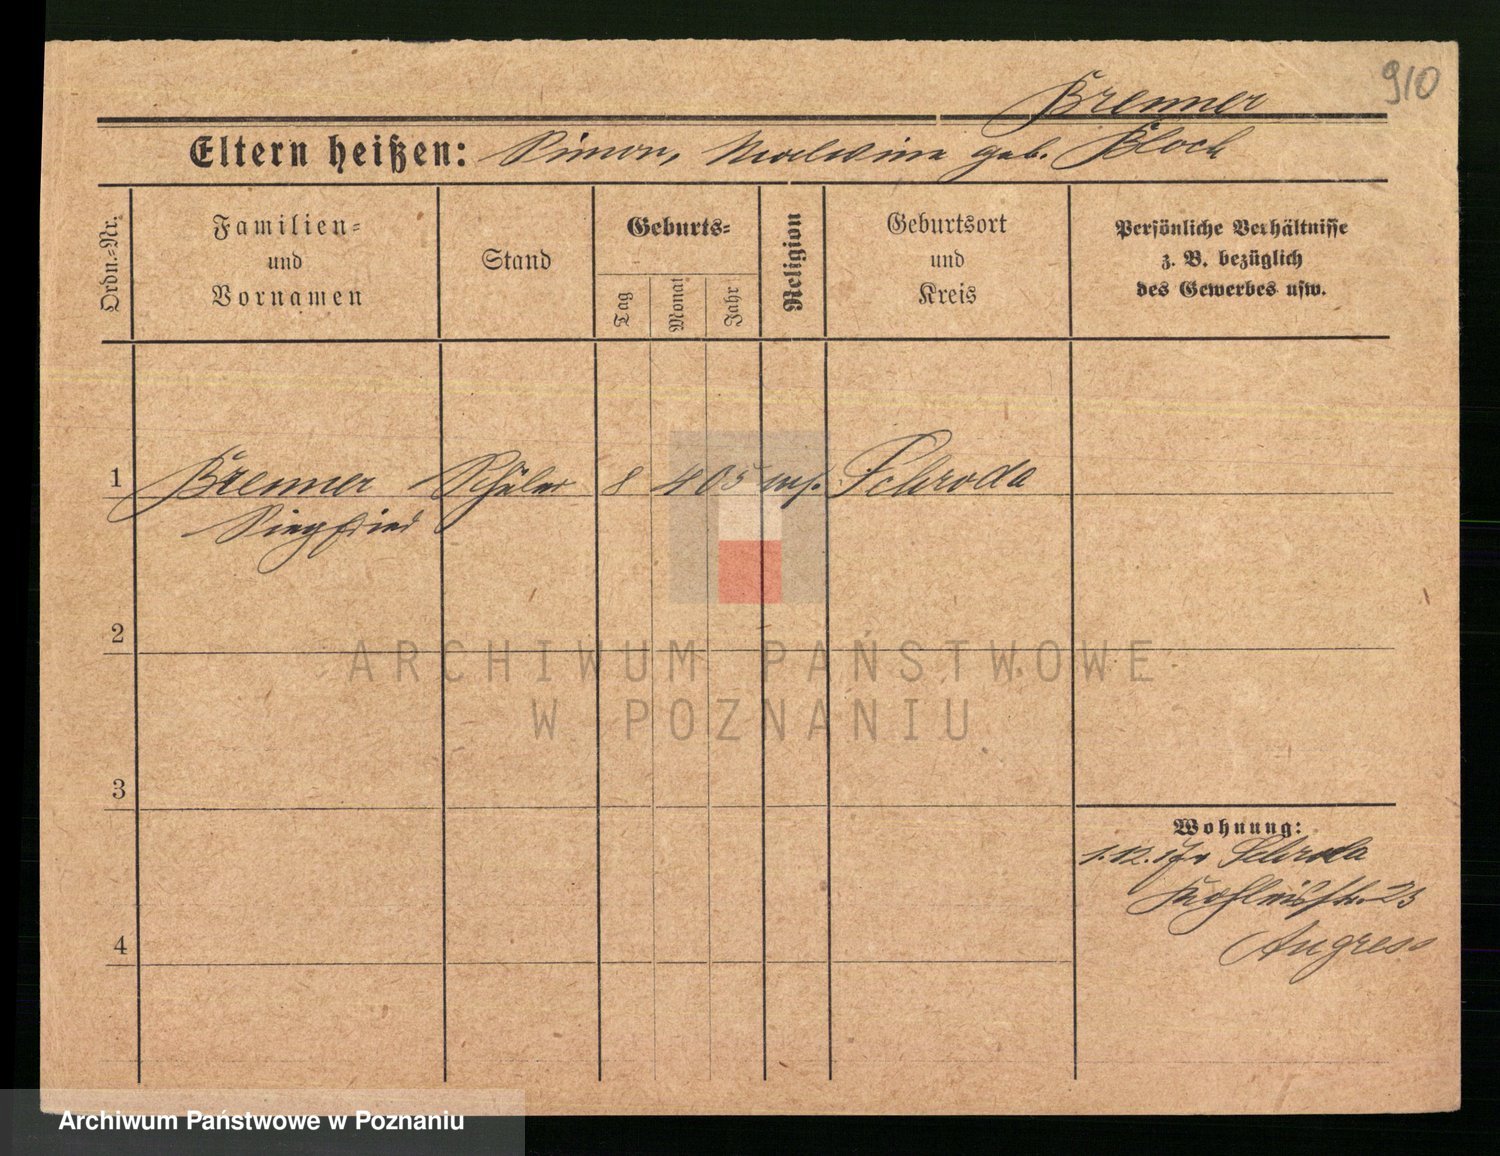 910
Brenner
Eltern heißen: Simon, Malwina geb. Bloch
Ordn.-Nr.
Familien-
und
Vornamen
Stand
Geburts-
Tag
Monat
Jahr
Religion
Geburtsort
und
Kreis
Persönliche Verhältnisse
z. B. bezüglich
des Gewerbes usw.
1 Brenner Schüler 8 4 05 mos. Schroda
Siegfried
2
ARCHIWUM PAŃSTWOWE
W POZNANIU
3
Wohnung:
1.12.17 v Schroda
23
4
Angress
Archiwum Państwowe w Poznaniu